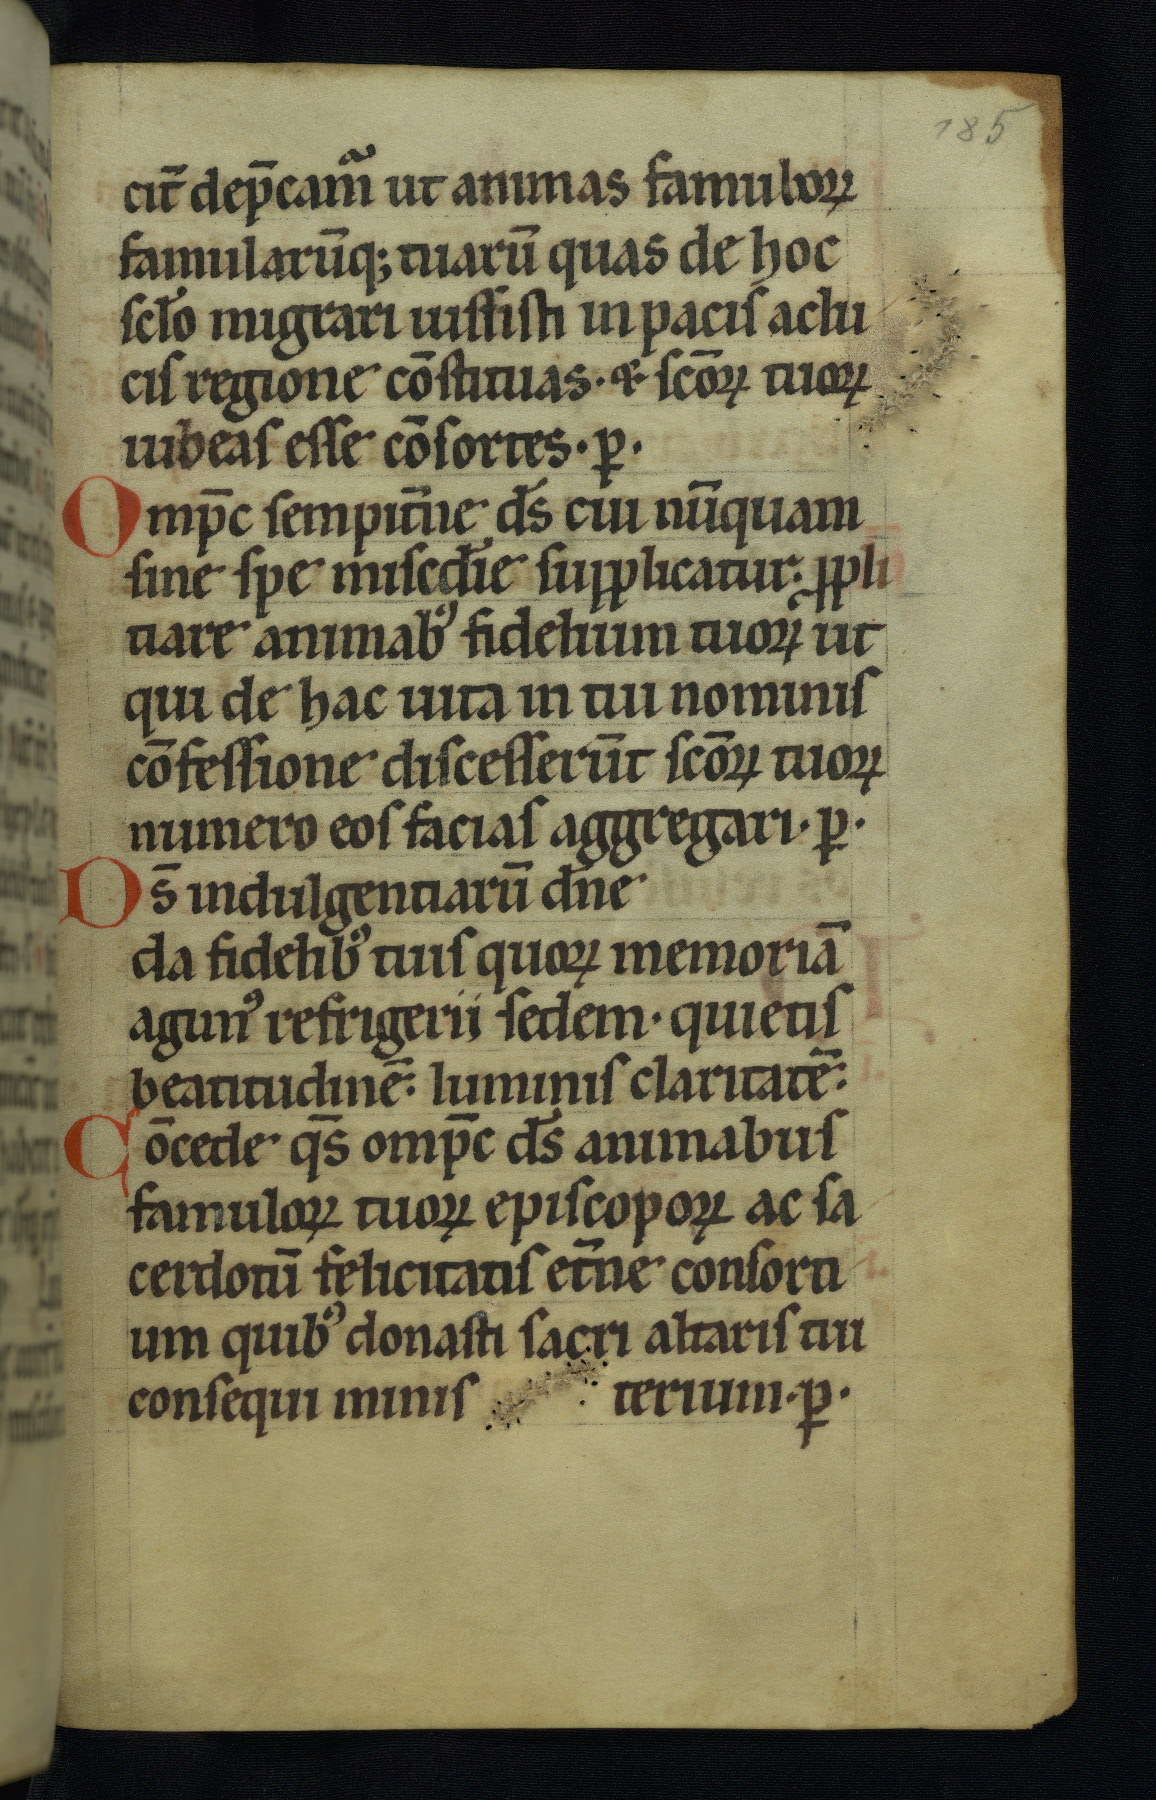 185
cit̄ dep̄cam̄ ut animas famuloꝝ
famularūq; tuarū quas de hoc
scło migrari uissisti in pacis ac lu
cis regione cōstituas · & scōꝝ tuoꝝ
iubeas esse cōsortes · p̲ ·
Omp̄c sempit̄ne ds̄ cui nūquam
sine spe misc̄die supplicatur : ꝓpli
tiare animabꝰ fidelium tuoꝝ ut
qui de hac uita in tui nominis
cōfessione discesserūt scōꝝ tuoꝝ
numero eos facias aggregari · p̲ ·
Ds̄ indulgentiarū dn̄e
da fidelibꝰ tuis quoꝝ memoriā
agimꝰ refrigerii sedem · quietis
beatitudinē : luminis claritatē :
Cōcede qs̄ omp̄c ds̄ animabus
famuloꝝ tuoꝝ episcopoꝝ ac sa
cerdotū felicitatis et̄ne consorti
um quibꝰ donasti sacri altaris tui
consequi minis terium · p̲ ·